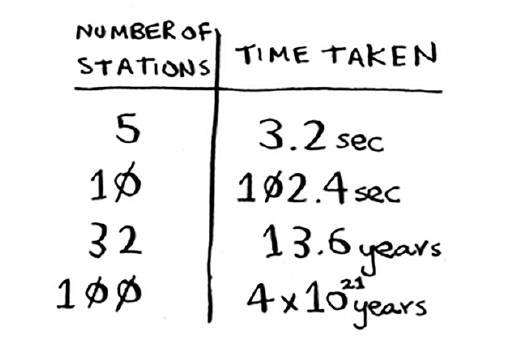 NUMBER OF STATIONS | TIME TAKEN
5 | 3.2 sec
1Ø | 1Ø2.4 sec
32 | 13.6 years
1ØØ | 4 x 10²¹ years